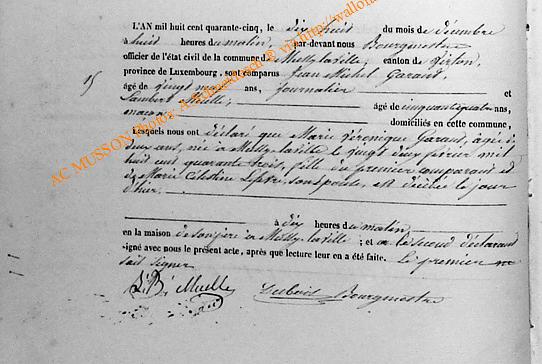 L'AN mil huit cent quarante-cinq, le dix huit du mois de décembre
à huit heures du matin, par-devant nous Bourgmestre
officier de l'état civil de la commune de Mussy-la-ville, canton de Virton,
15 province de Luxembourg, sont comparus Jean Michel Garand,
âgé de vingt ans, journalier et
Lambert Muelle, âgé de cinquante quatre ans,
maçon domiciliés en cette commune,
lesquels nous ont déclaré que Marie Véronique Garand, âgée de
deux ans, née à Mussy-la-ville le vingt deux février mil
huit cent quarante trois, fille du premier comparant et
de Marie Célestine Lefèvre, son épouse, est décédée le jour
d'hier,
à dix heures du matin,
en la maison de son père à Mussy-la-ville; et a le second déclarant
signé avec nous le présent acte, après que lecture leur en a été faite. Le premier ne
sait signer
L. B. Muelle Bourgmestre
AC MUSSON Photos A